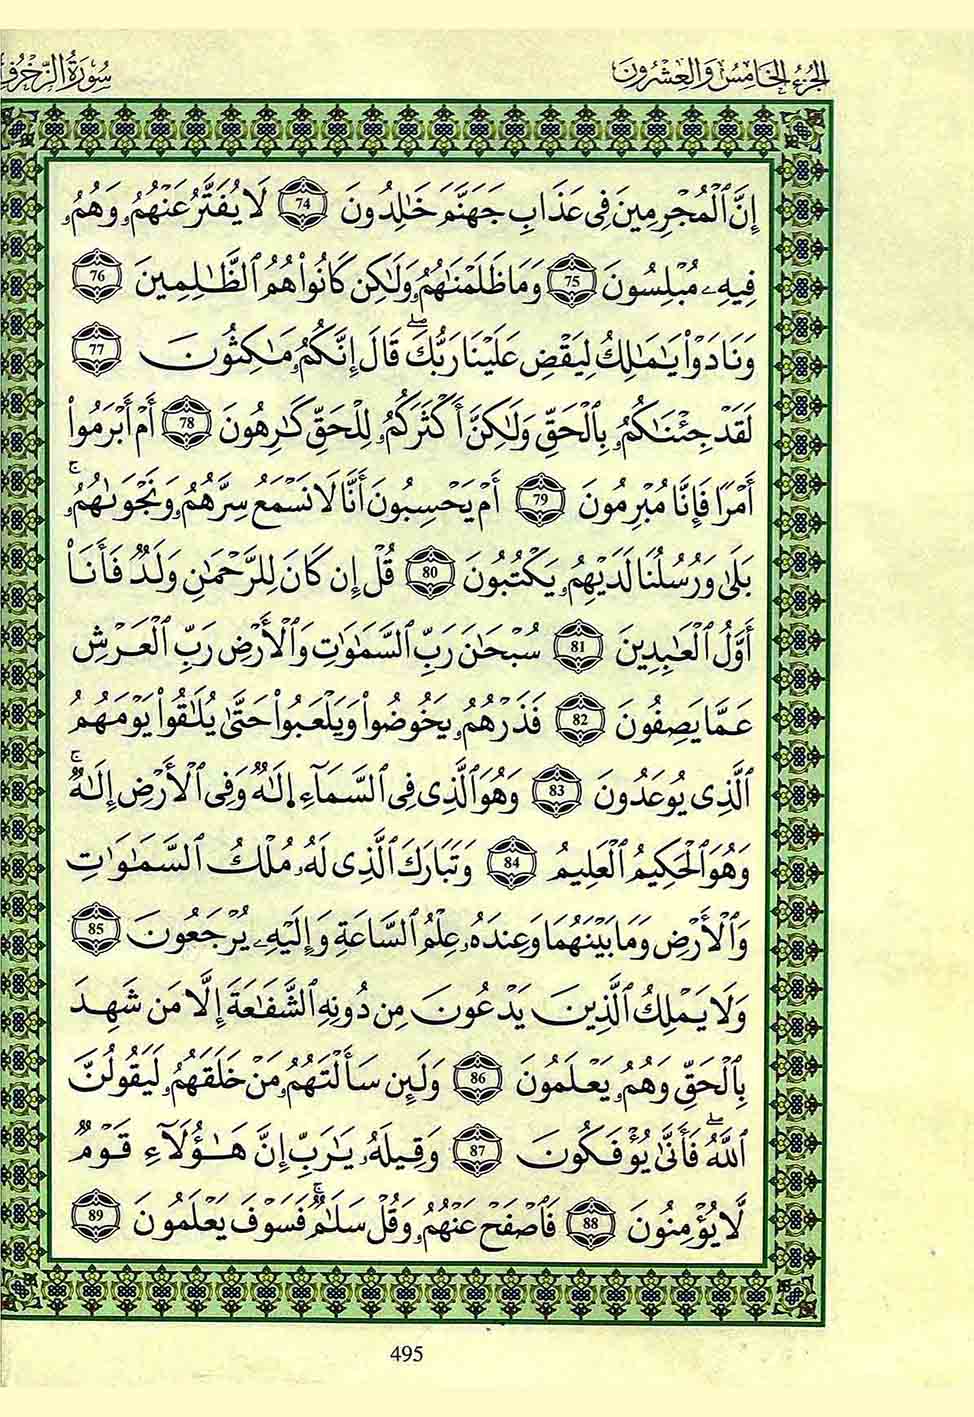 الجزء الخامس والعشرون
سورة الزخرف
إِنَّ ٱلْمُجْرِمِينَ فِى عَذَابِ جَهَنَّمَ خَٰلِدُونَ 74 لَا يُفَتَّرُ عَنْهُمُۥ وَهُمُۥ
فِيهِۦ مُبْلِسُونَ 75 وَمَا ظَلَمْنَٰهُمُۥ وَلَٰكِن كَانُوا۟ هُمُ ٱلظَّٰلِمِينَ 76
وَنَادَوْا۟ يَٰمَٰلِكُ لِيَقْضِ عَلَيْنَا رَبُّكَ ۖ قَالَ إِنَّكُمُۥ مَٰكِثُونَ 77
لَقَدْ جِئْنَٰكُمُۥ بِٱلْحَقِّ وَلَٰكِنَّ أَكْثَرَكُمُۥ لِلْحَقِّ كَٰرِهُونَ 78 أَمْ أَبْرَمُوا۟
أَمْرًا فَإِنَّا مُبْرِمُونَ 79 أَمْ يَحْسِبُونَ أَنَّا لَا نَسْمَعُ سِرَّهُمُۥ وَنَجْوَىٰهُمُۥ ۚ
بَلَىٰ وَرُسُلُنَا لَدَيْهِمُۥ يَكْتُبُونَ 80 قُلْ إِن كَانَ لِلرَّحْمَٰنِ وَلَدٌ فَأَنَا۠
أَوَّلُ ٱلْعَٰبِدِينَ 81 سُبْحَٰنَ رَبِّ ٱلسَّمَٰوَٰتِ وَٱلْأَرْضِ رَبِّ ٱلْعَرْشِ
عَمَّا يَصِفُونَ 82 فَذَرْهُمُۥ يَخُوضُوا۟ وَيَلْعَبُوا۟ حَتَّىٰ يُلَٰقُوا۟ يَوْمَهُمُ
ٱلَّذِى يُوعَدُونَ 83 وَهُوَ ٱلَّذِى فِى ٱلسَّمَآءِ إِلَٰهٌ وَفِى ٱلْأَرْضِ إِلَٰهٌ ۚ
وَهُوَ ٱلْحَكِيمُ ٱلْعَلِيمُ 84 وَتَبَارَكَ ٱلَّذِى لَهُۥ مُلْكُ ٱلسَّمَٰوَٰتِ
وَٱلْأَرْضِ وَمَا بَيْنَهُمَا وَعِندَهُۥ عِلْمُ ٱلسَّاعَةِ وَإِلَيْهِۦ يُرْجَعُونَ 85
وَلَا يَمْلِكُ ٱلَّذِينَ يَدْعُونَ مِن دُونِهِ ٱلشَّفَٰعَةَ إِلَّا مَن شَهِدَ
بِٱلْحَقِّ وَهُمُۥ يَعْلَمُونَ 86 وَلَئِن سَأَلْتَهُمُۥ مَنْ خَلَقَهُمُۥ لَيَقُولُنَّ
ٱللَّهُ ۖ فَأَنَّىٰ يُؤْفَكُونَ 87 وَقِيلَهُۥ يَٰرَبِّ إِنَّ هَٰٓؤُلَآءِ قَوْمٌ
لَّا يُؤْمِنُونَ 88 فَٱصْفَحْ عَنْهُمُۥ وَقُلْ سَلَٰمٌ ۚ فَسَوْفَ يَعْلَمُونَ 89
495